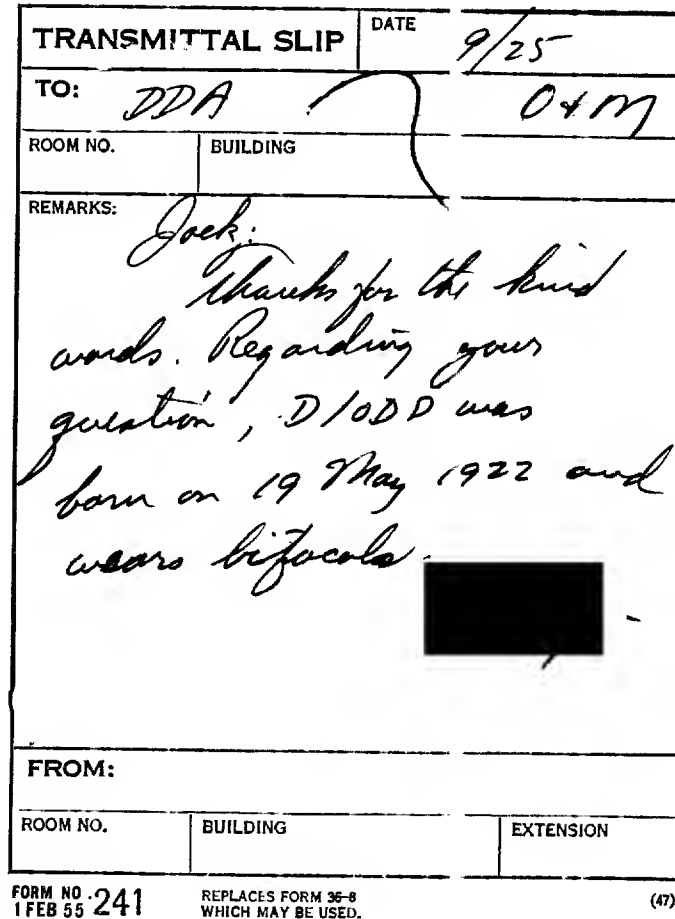 TRANSMITTAL SLIP
DATE
9/25
TO:
DDA
O&M
ROOM NO.
BUILDING
REMARKS:
Jack:
Thanks for the kind
words. Regarding your
question, D/ODD was
born on 19 May 1922 and
wears bifocals.
FROM:
ROOM NO.
BUILDING
EXTENSION
FORM NO. 241
1 FEB 55
REPLACES FORM 36-8
WHICH MAY BE USED.
(47)